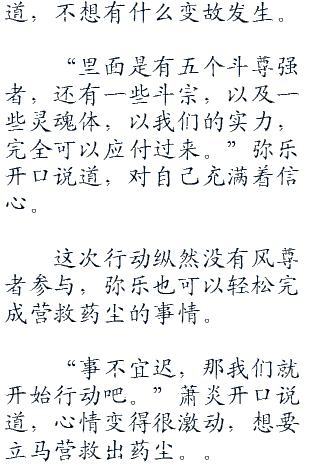 道，不想有什么变故发生。
“里面是有五个斗尊强
者，还有一些斗宗，以及一
些灵魂体，以我们的实力，
完全可以应付过来。”弥乐
开口说道，对自己充满着信
心。
这次行动纵然没有风尊
者参与，弥乐也可以轻松完
成营救药尘的事情。
“事不宜迟，那我们就
开始行动吧。”萧炎开口说
道，心情变得很激动，想要
立马营救出药尘。。